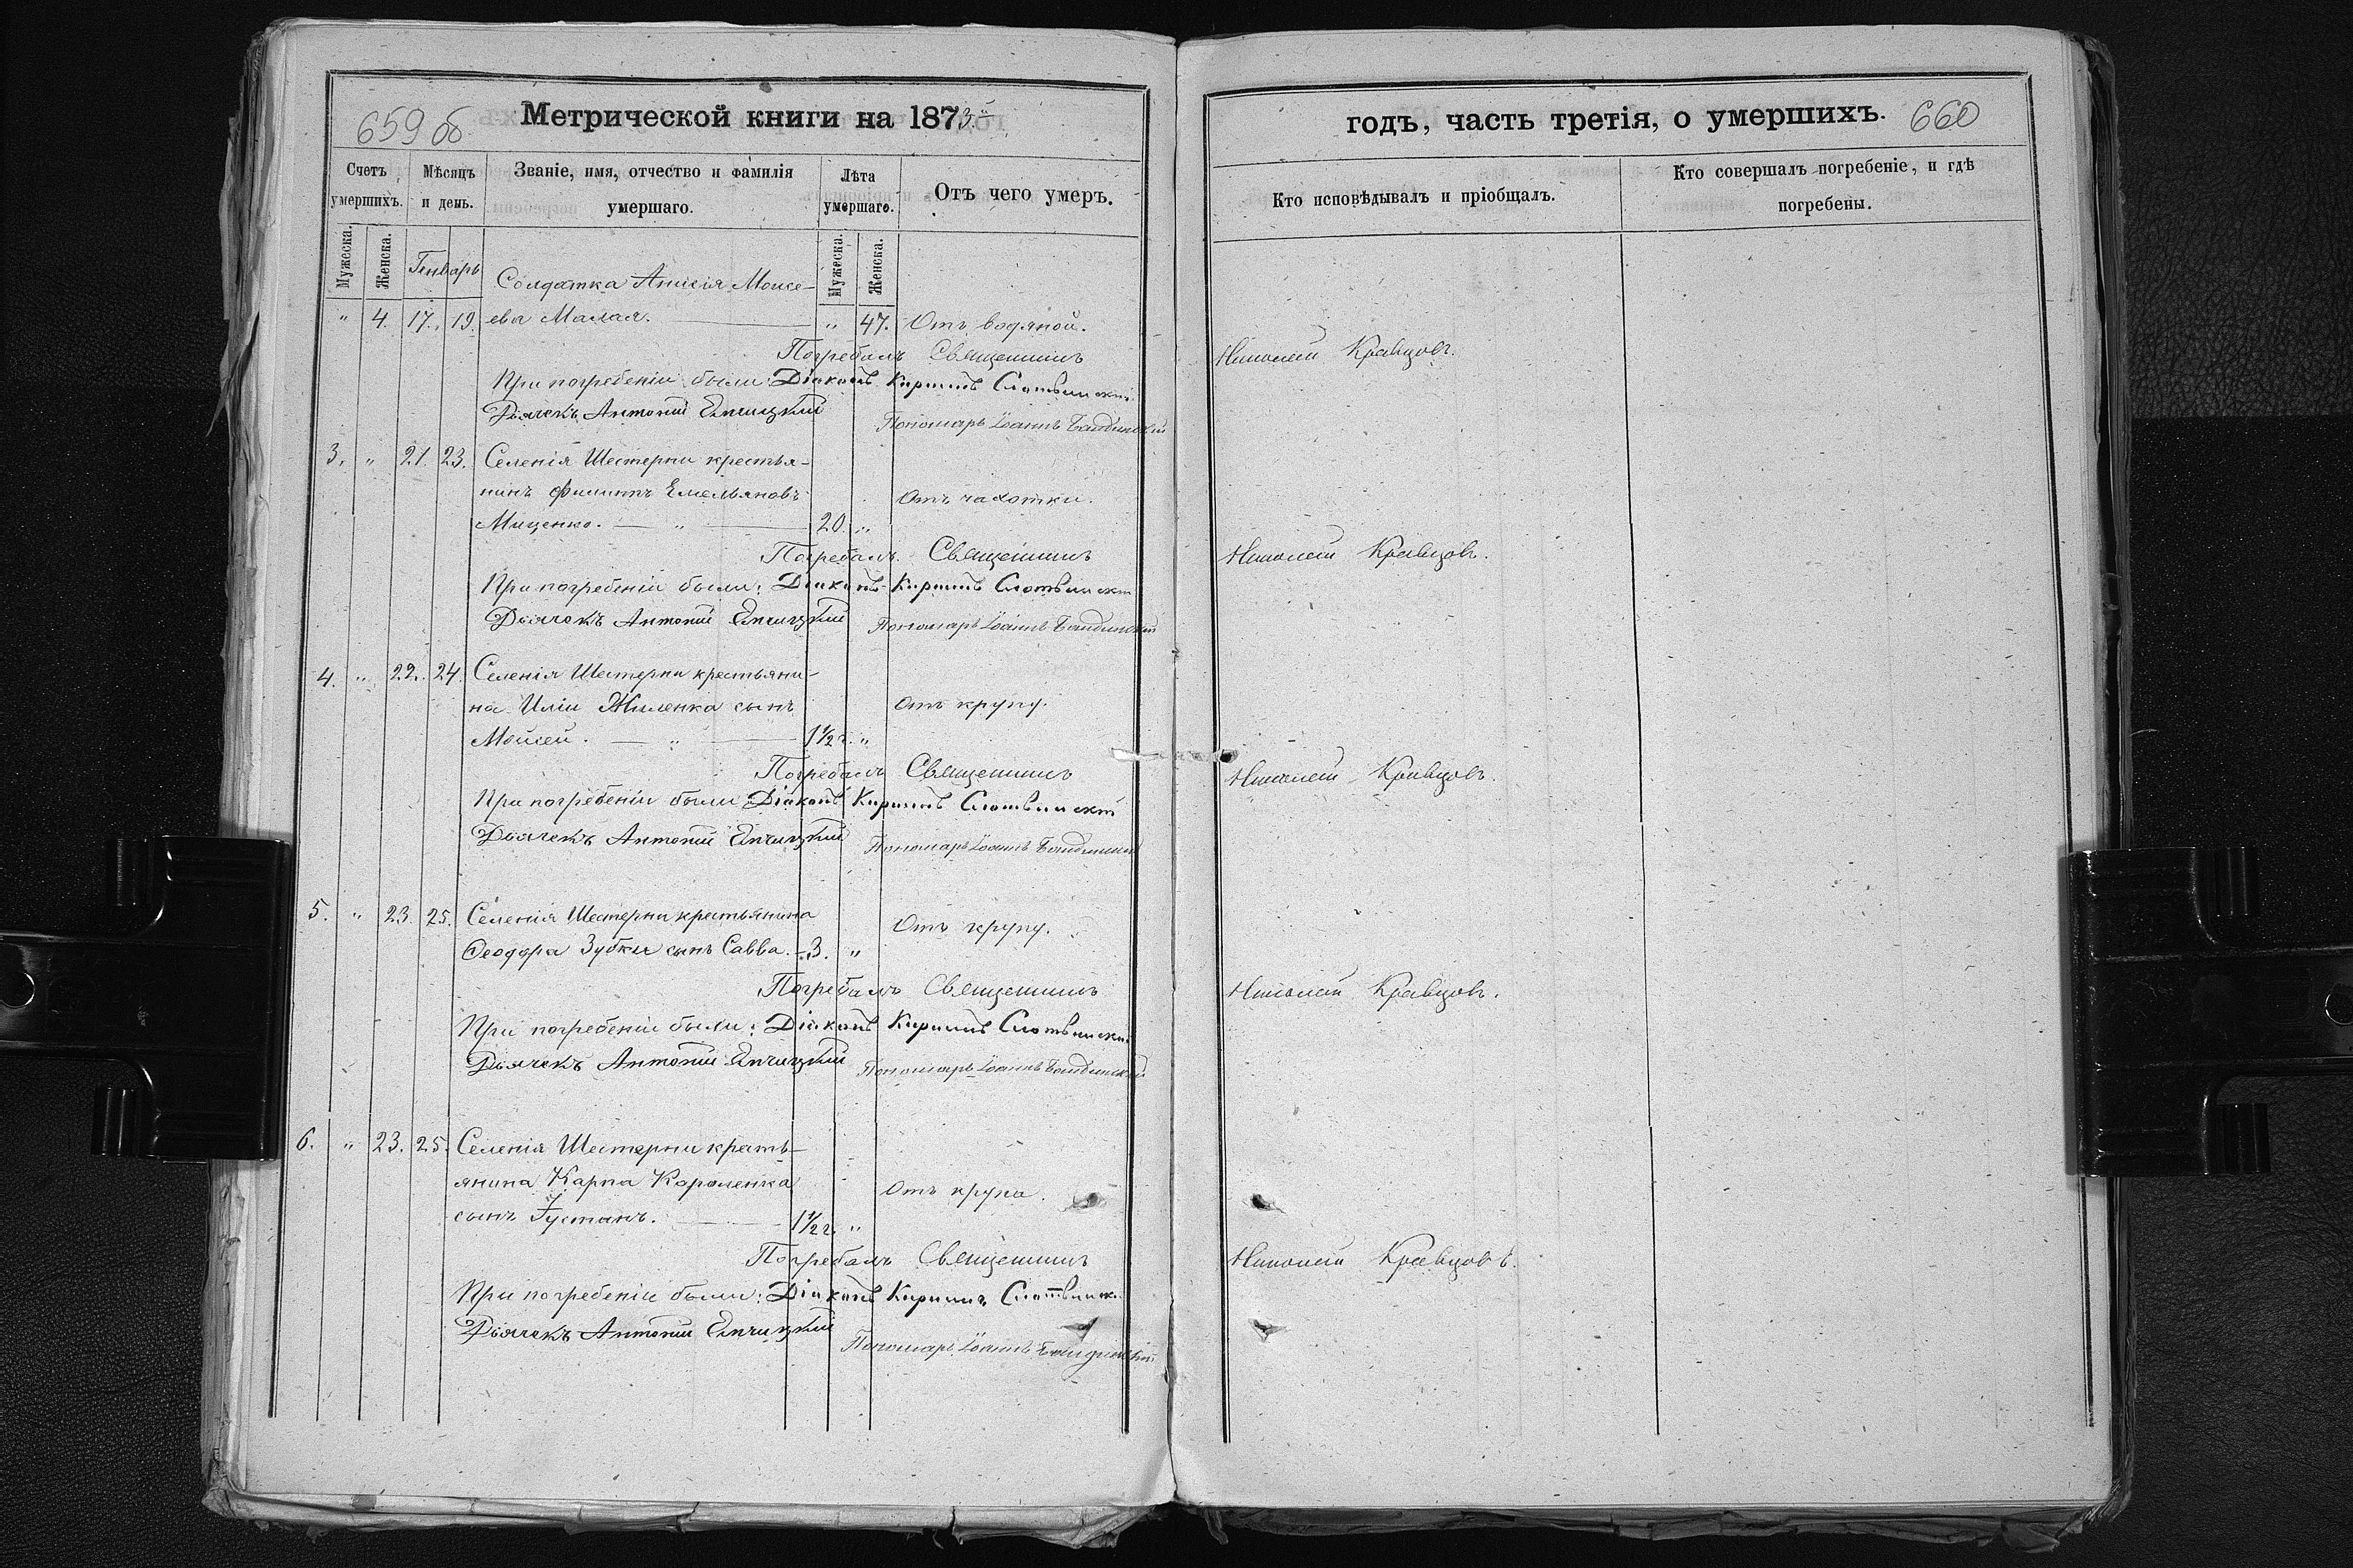 659 об
Метрической книги на 1873й
годъ, часть третія, о умершихъ.
660
Счетъ умершихъ.
Мѣсяцъ и день.
Званіе, имя, отчество и фамилія умершаго.
Лѣта умершаго.
Отъ чего умеръ.
Кто исповѣдывалъ и пріобщалъ.
Кто совершалъ погребеніе, и гдѣ погребены.
Мужеска. Женска. Генварь Мужеска. Женска.
Солдатка Анисія Моисе-
" 4. 17. 19. ева Малая. " 47. Отъ водяной.
Погребалъ Священникъ Николай Кравцовъ.
При погребеніи были: Діаконъ Кириллъ Слотвинскій
Дьячекъ Антоній
Пономарь Іоаннъ
3. " 21. 23. Селенія Шестерни крестья-
нинъ Филиппъ Емельяновъ Отъ чахотки.
Миценко. — " — 20. "
Погребалъ Священникъ Николай Кравцовъ.
При погребеніи были: Діаконъ Кириллъ Слотвинскій
Дьячекъ Антоній
Пономарь Іоаннъ
4. " 22. 24. Селенія Шестерни крестьяни-
на Иліи Жиленка сынъ Отъ крупу.
Мойсей. — " — 1½ г. "
Погребалъ Священникъ Николай Кравцовъ.
При погребеніи были: Діаконъ Кириллъ Слотвинскій
Дьячекъ Антоній
Пономарь Іоаннъ
5. " 23. 25. Селенія Шестерни крестьянина Отъ крупу.
Феодора Зубки сынъ Савва. — 3. "
Погребалъ Священникъ Николай Кравцовъ.
При погребеніи были: Діаконъ Кириллъ Слотвинскій
Дьячекъ Антоній
Пономарь Іоаннъ
6. " 23. 25. Селенія Шестерни кресть-
янина Карпа Короленка Отъ крупа.
сынъ Іустинъ. — 1½ г. "
Погребалъ Священникъ Николай Кравцовъ.
При погребеніи были: Діаконъ Кириллъ Слотвинскій
Дьячекъ Антоній
Пономарь Іоаннъ